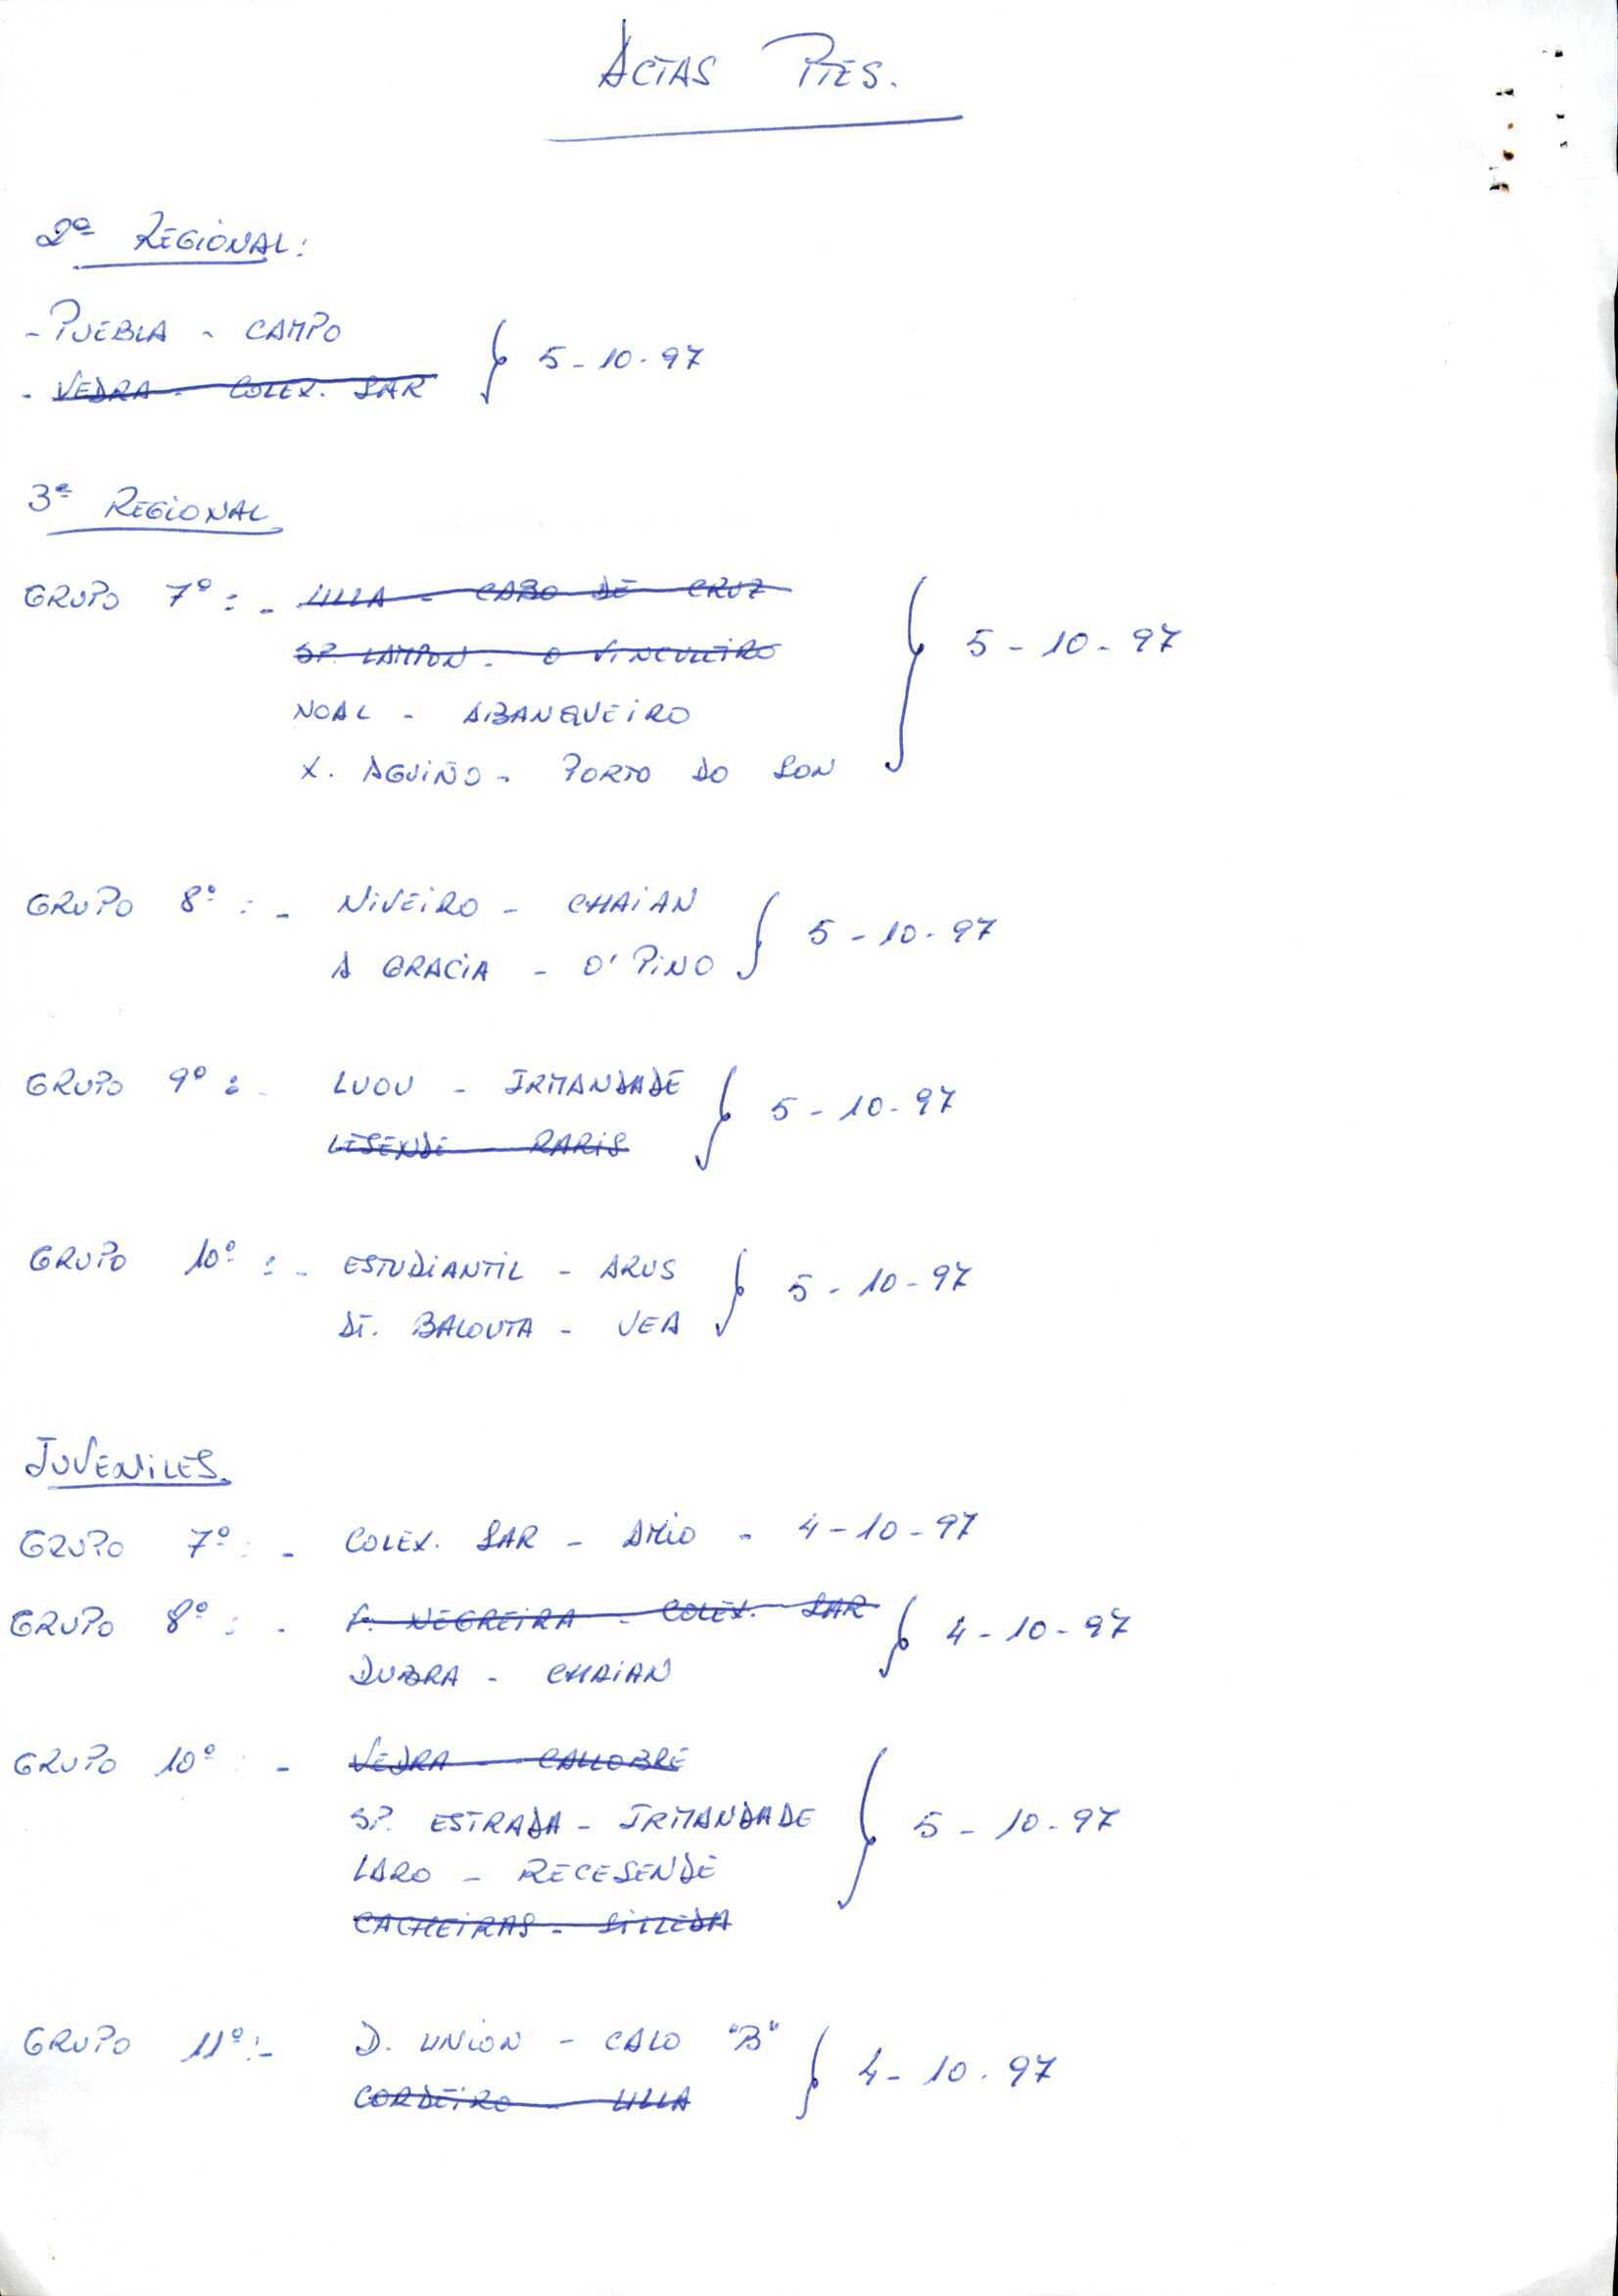 ACTAS PTES.
2ª REGIONAL:
- PUEBLA - CAMPO
- VEDRA - COLEX. SAR } 5-10-97
3ª REGIONAL
GRUPO 7º : - ULLA - CABO DE CRUZ
SP. LAMPON - O VINCULEIRO } 5-10-97
NOAL - ABANQUEIRO
X. AGUIÑO - PORTO DO SON
GRUPO 8º : - NIVEIRO - CHAIAN
A GRACIA - O'PINO } 5-10-97
GRUPO 9º : - LUOU - IRMANDADE
LESENDE - RARIS } 5-10-97
GRUPO 10º : - ESTUDIANTIL - ARUS
DT. BALOUTA - VEA } 5-10-97
JUVENILES.
GRUPO 7º : - COLEX. SAR - AMIO - 4-10-97
GRUPO 8º : - F. NEGREIRA - COLEX. SAR
DUBRA - CHAIAN } 4-10-97
GRUPO 10º : - VEDRA - CALLOBRE
SP. ESTRADA - IRMANDADE } 5-10-97
LARO - RECESENDE
CACHEIRAS - SILLEDA
GRUPO 11º :- D. UNION - CALO "B"
CORDEIRO - ULLA } 4-10-97